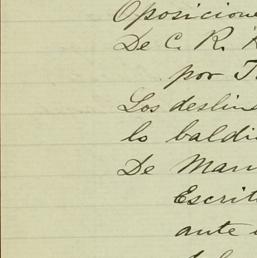 Oposicione
De C. R. H
por T
Los deslin
lo baldi
De Manu
Escrit
ante